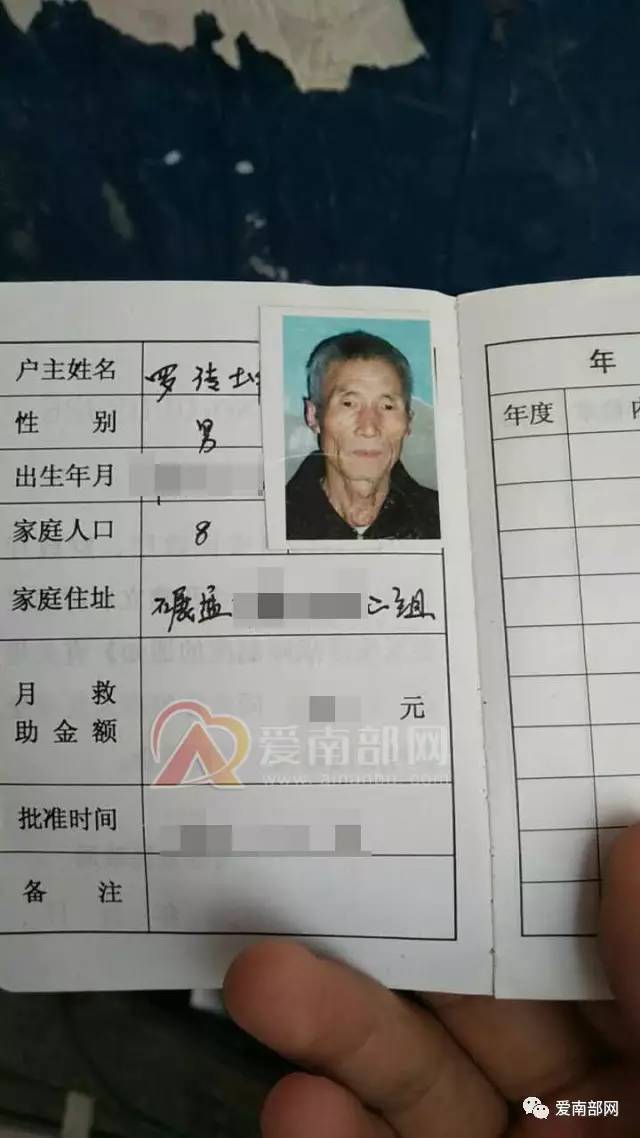 户主姓名 罗德
性 别 男
出生年月
家庭人口 8
家庭住址 碾盘 二组
月 救
助金额 元
批准时间
备 注
年
年度
爱南部网
www.ainanbu.com
爱南部网